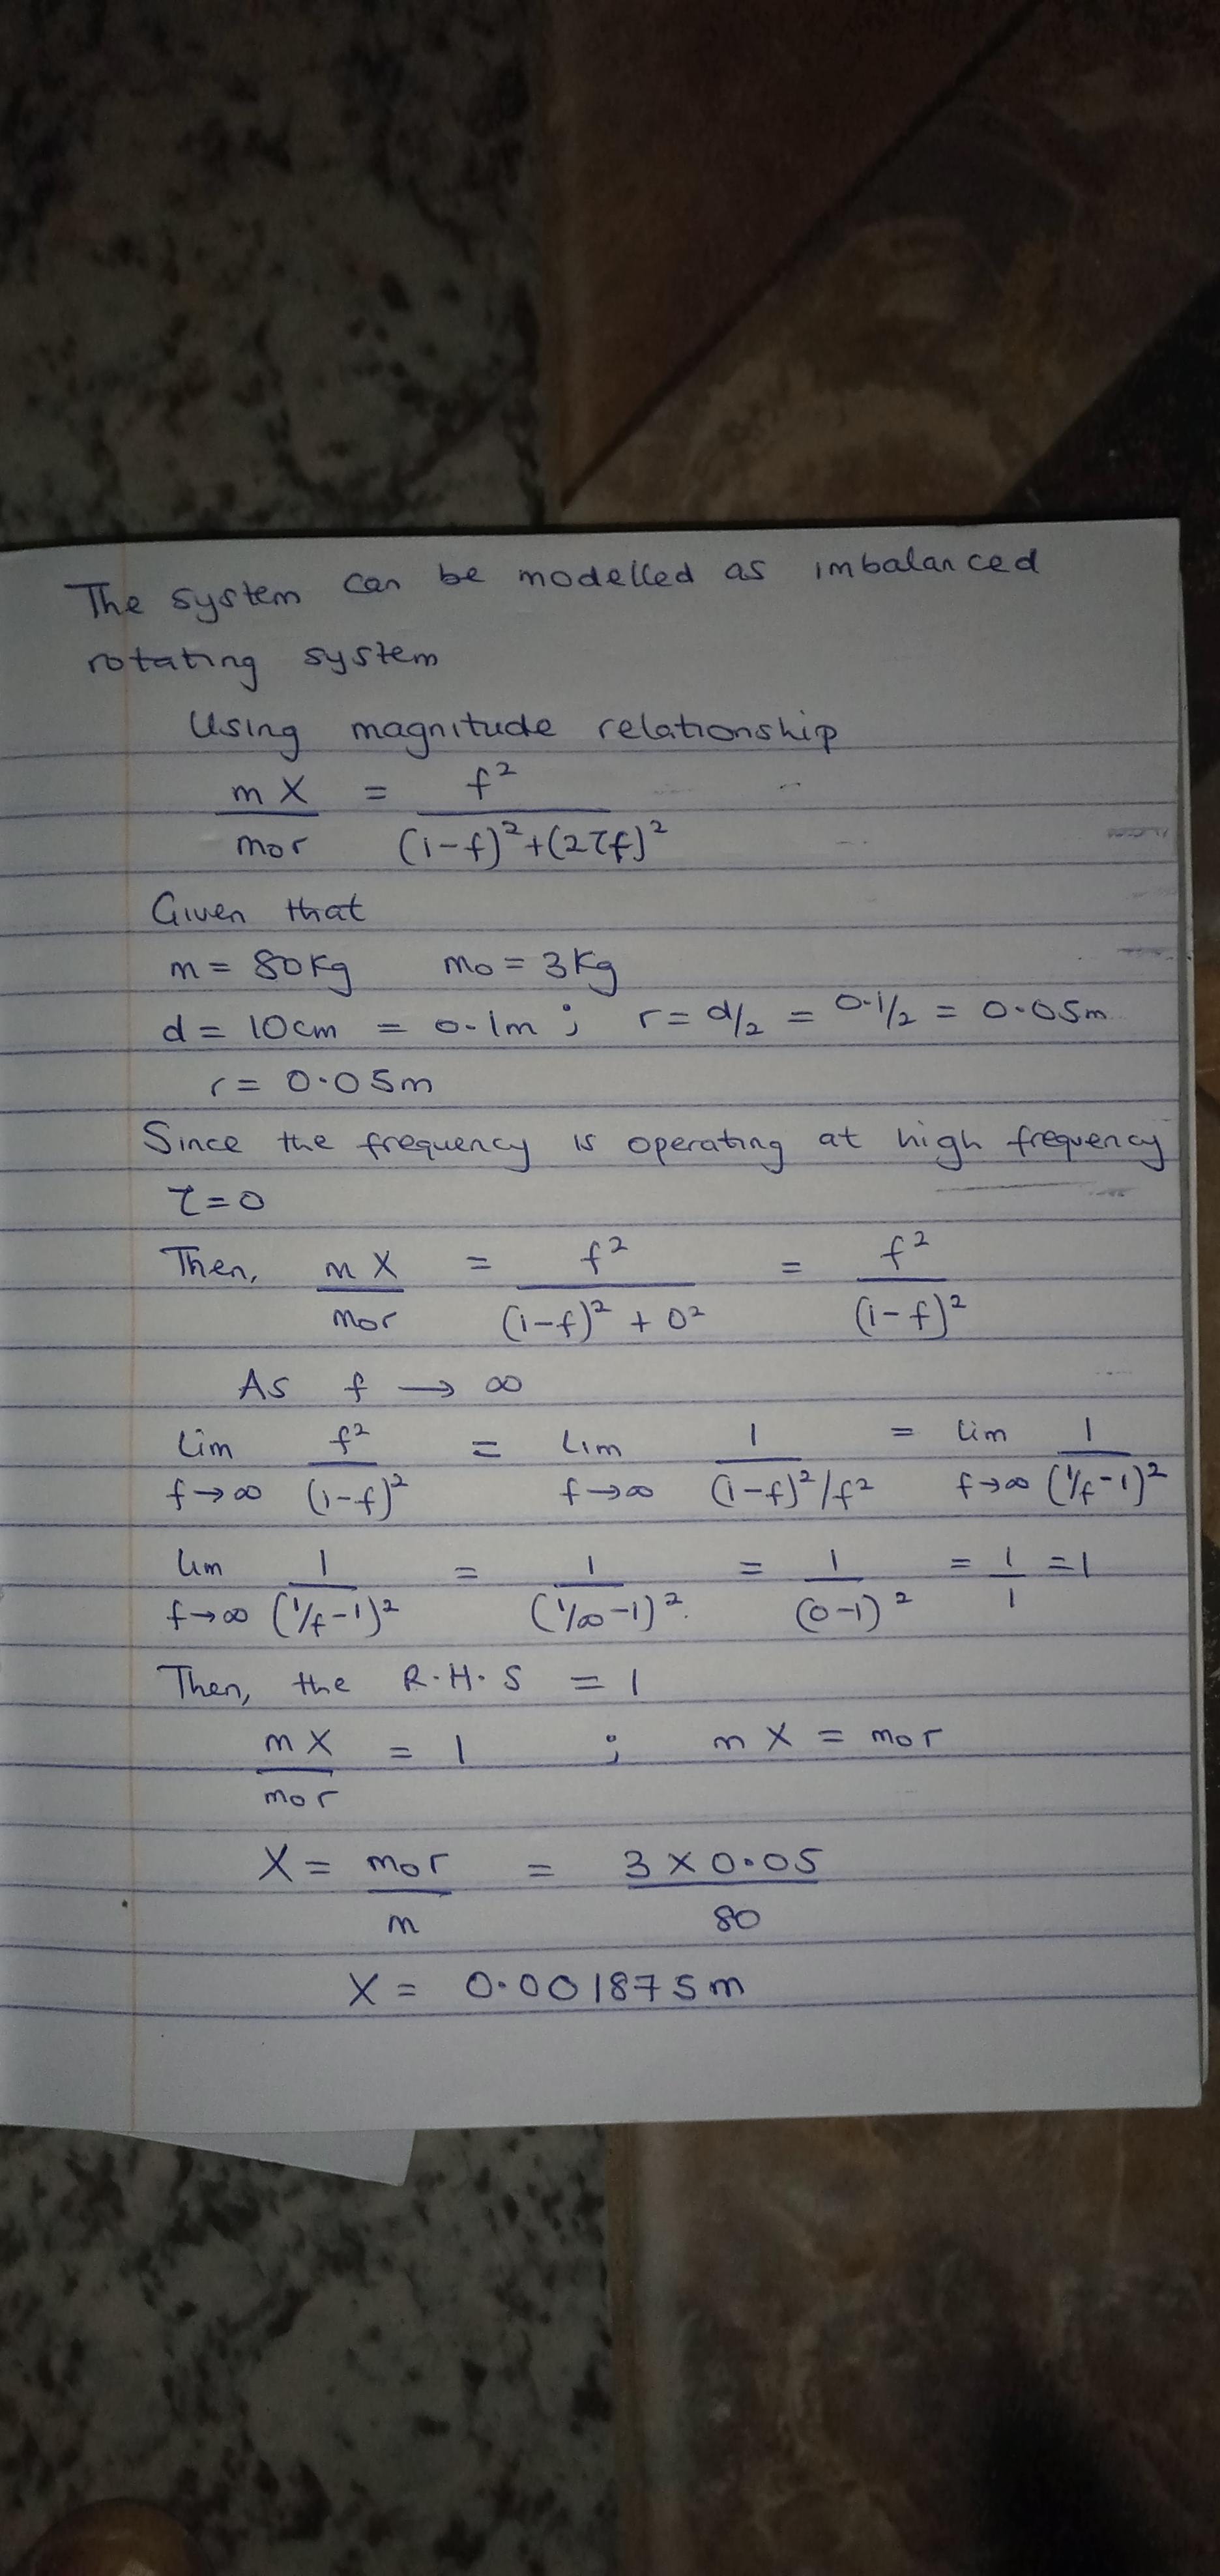 The system can be modelled as imbalanced
rotating system
Using magnitude relationship
mX/mor = f²/(1-f)²+(2τf)²
Given that
m = 80kg mo = 3kg
d = 10cm = 0.1m ; r = d/2 = 0.1/2 = 0.05m
r = 0.05m
Since the frequency is operating at high frequency
τ=0
Then, mX/mor = f²/(1-f)² + 0² = f²/(1-f)²
As f → ∞
Lim f→∞ f²/(1-f)² = Lim f→∞ 1/(1-f)²/f² = Lim f→∞ 1/(1/f-1)²
Lim f→∞ 1/(1/f-1)² = 1/(1/∞-1)² = 1/(0-1)² = 1/1 = 1
Then, the R.H.S = 1
mX/mor = 1 ; mX = mor
X = mor/m = 3 X 0.05/80
X = 0.001875m